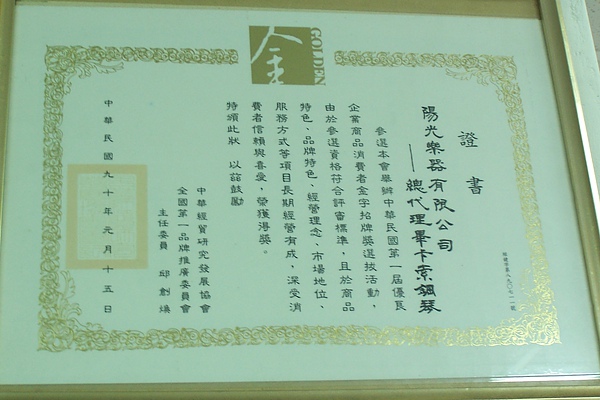 金
GOLDEN
證書
陽光樂器有限公司
——總代理畢卡索鋼琴
參選本會舉辦中華民國第一屆優良
企業商品消費者金字招牌獎選拔活動，
由於參選資格符合評審標準，且於商品
特色、品牌特色、經營理念、市場地位、
服務方式等項目長期經營有成，深受消
費者信賴與喜愛，榮獲得獎。
特頒此狀 以茲鼓勵
中華經貿研究發展協會
全國第一品牌推廣委員會
主任委員 邱創煥
中華民國九十年元月十五日